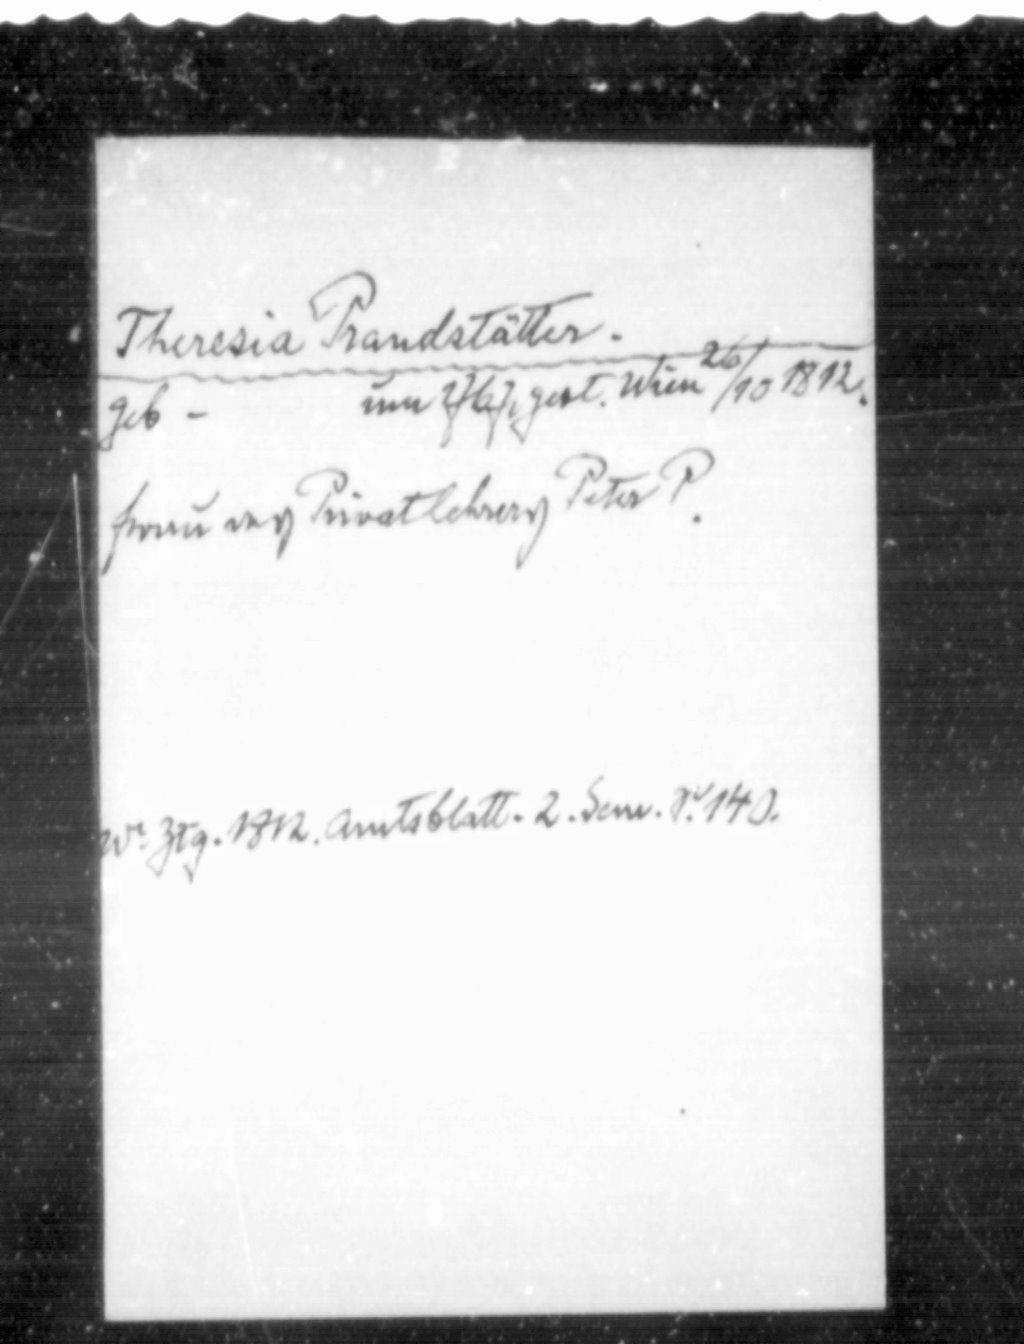 Theresia Prandstätter.
geb – um gest. Wien 26/10 1812.
frau des Privatlehrers Peter P.
Wr. Ztg. 1812. Amtsblatt. 2. Sem. S. 140.